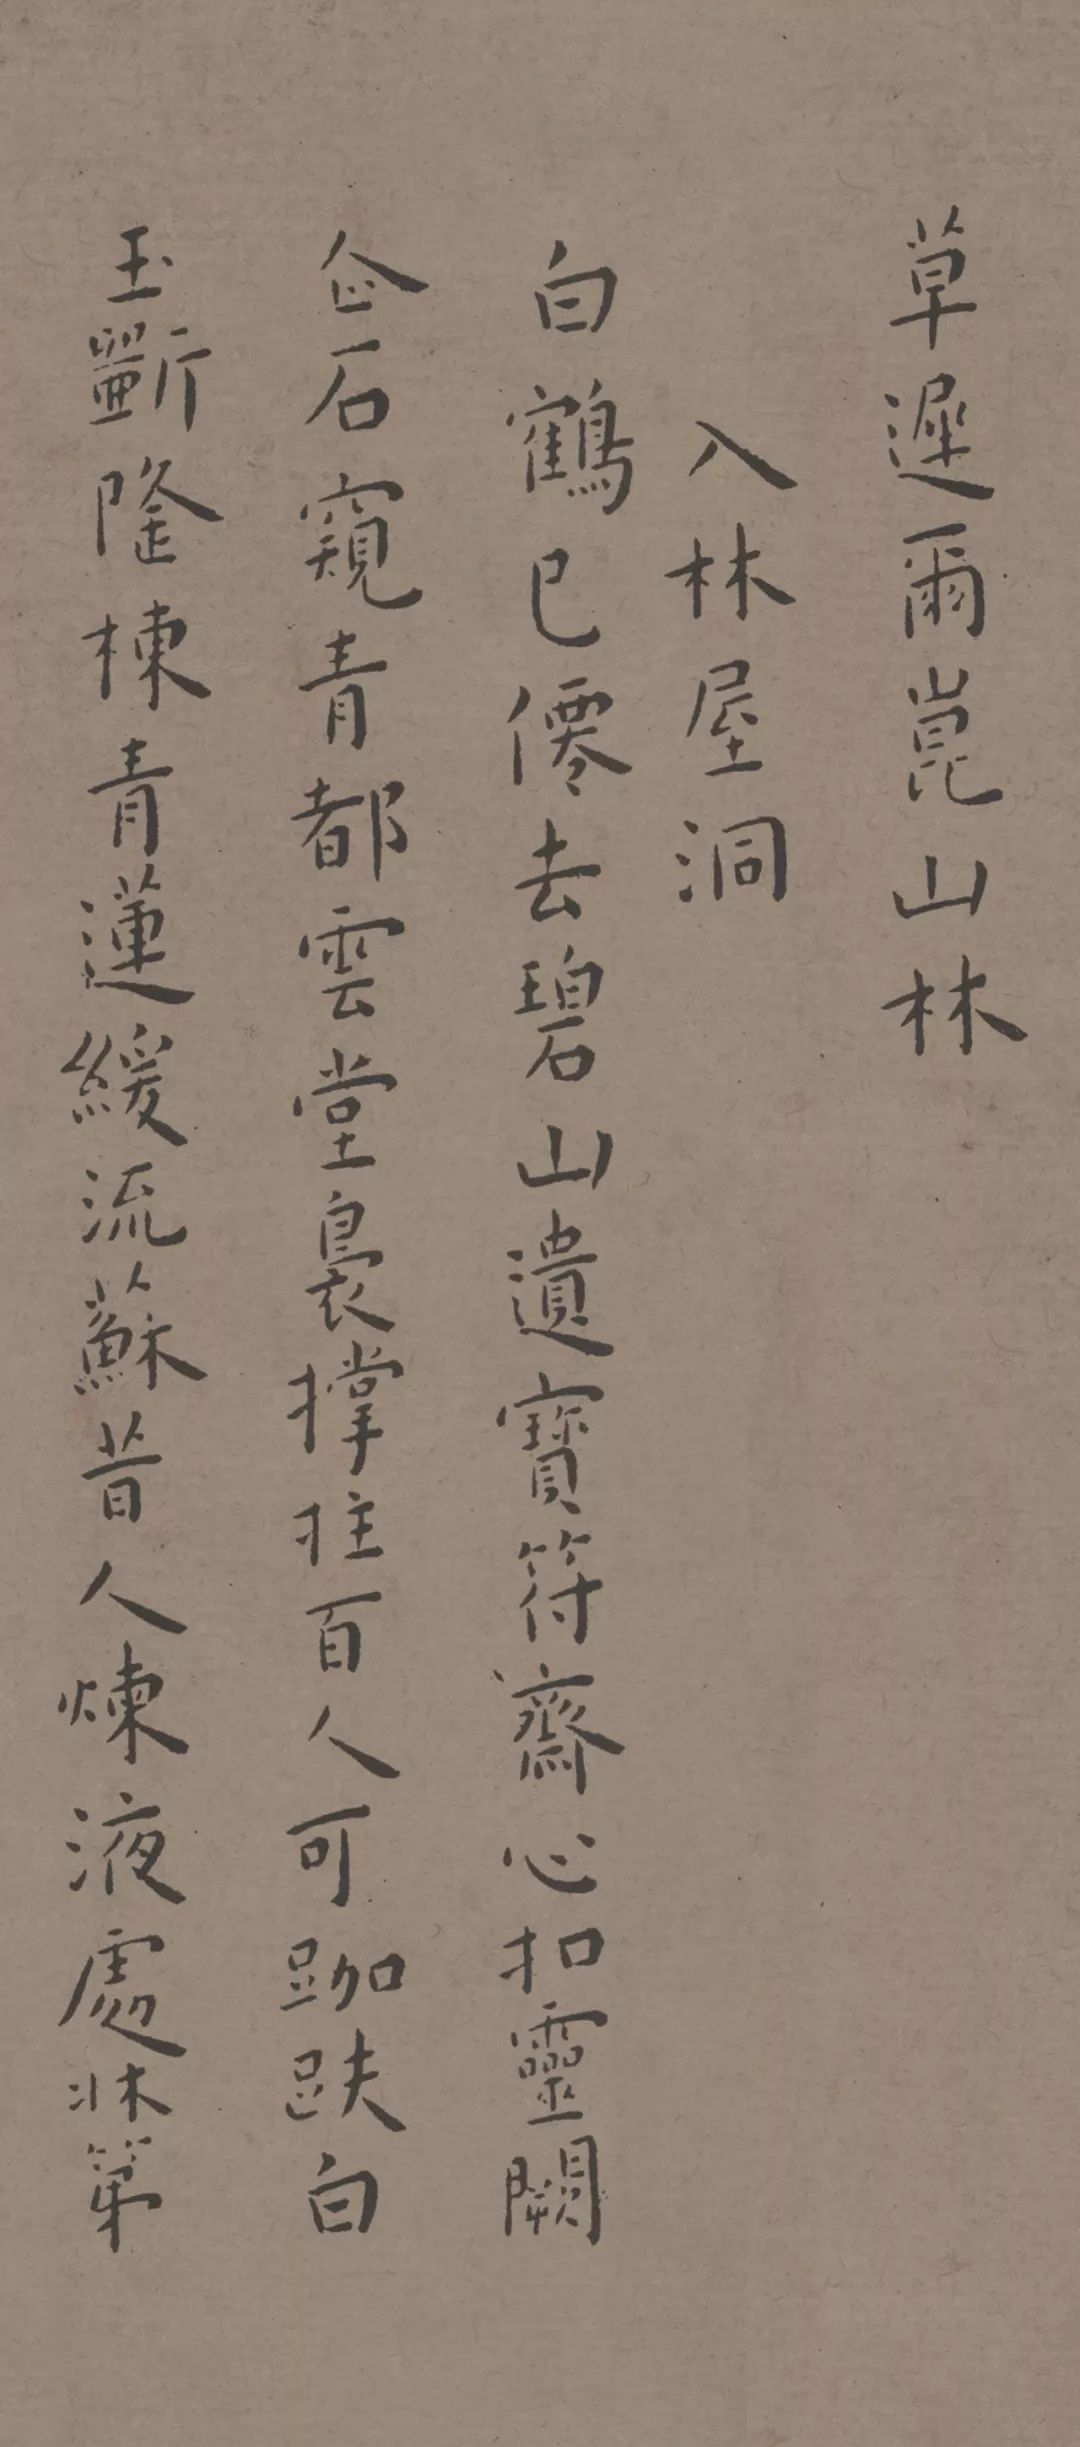 草遲爾崑山林
入林屋洞
白鶴已僊去碧山遺寶符齋心扣靈闕
企石窺青都雲堂裊撑拄百人可跏趺白
玉斲隆棟青蓮緩流蘇昔人煉液處牀第